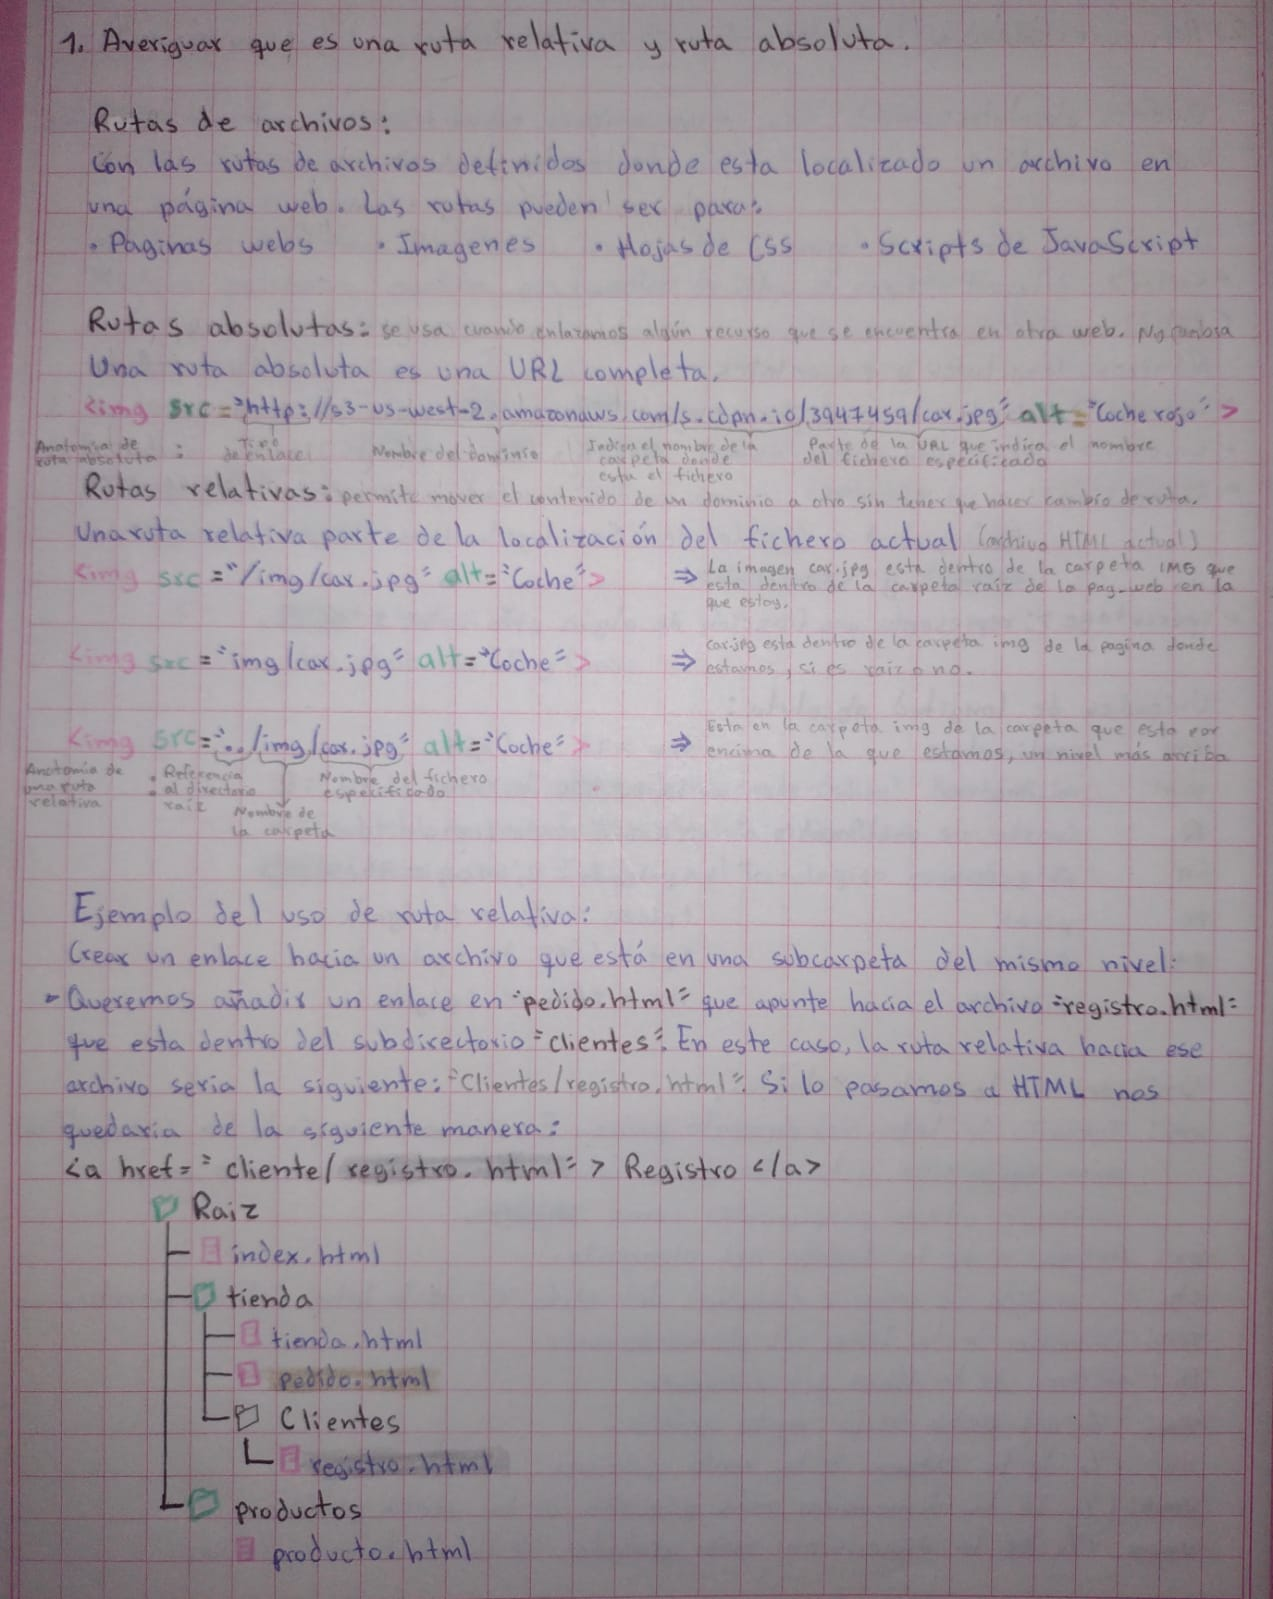 1. Averiguar que es una ruta relativa y ruta absoluta.
Rutas de archivos:
Con las rutas de archivos definidos donde esta localizado un archivo en
una página web. Las rutas pueden ser para:
• Paginas webs • Imagenes • Hojas de CSS • Scripts de JavaScript
Rutas absolutas: se usa cuando enlazamos algún recurso que se encuentra en otra web. No cambia
Una ruta absoluta es una URL completa.
<img src="http://s3-us-west-2.amazonaws.com/s.cdpn.io/3947459/car.jpg" alt="Coche rojo">
Anatomia de ruta absoluta : Tipo de enlace Nombre del dominio Indica el nombre de la carpeta donde esta el fichero Parte de la URL que indica el nombre del fichero especificado
Rutas relativas: permite mover el contenido de un dominio a otro sin tener que hacer cambio de ruta.
Una ruta relativa parte de la localización del fichero actual (archivo HTML actual)
<img src="/img/car.jpg" alt="Coche"> ⇒ La imagen car.jpg esta dentro de la carpeta IMG que
esta dentro de la carpeta raíz de la pag-web en la
que estoy.
<img src="img/car.jpg" alt="Coche"> ⇒ car.jpg esta dentro de la carpeta img de la pagina donde
estamos, si es raiz o no.
<img src="../img/car.jpg" alt="Coche"> ⇒ Esta en la carpeta img de la carpeta que esta por
encima de la que estamos, un nivel más arriba
Anatomia de una ruta relativa : Referencia al directorio raíz Nombre de la carpeta Nombre del fichero especificado
Ejemplo del uso de ruta relativa:
Crear un enlace hacia un archivo que está en una subcarpeta del mismo nivel:
- Queremos añadir un enlace en "pedido.html" que apunte hacia el archivo "registro.html"
que esta dentro del subdirectorio "clientes". En este caso, la ruta relativa hacia ese
archivo seria la siguiente: "Clientes/registro.html". Si lo pasamos a HTML nos
quedaria de la siguiente manera:
<a href=" cliente/registro.html"> Registro </a>
Raiz
index.html
tienda
tienda.html
pedido.html
Clientes
registro.html
productos
producto.html